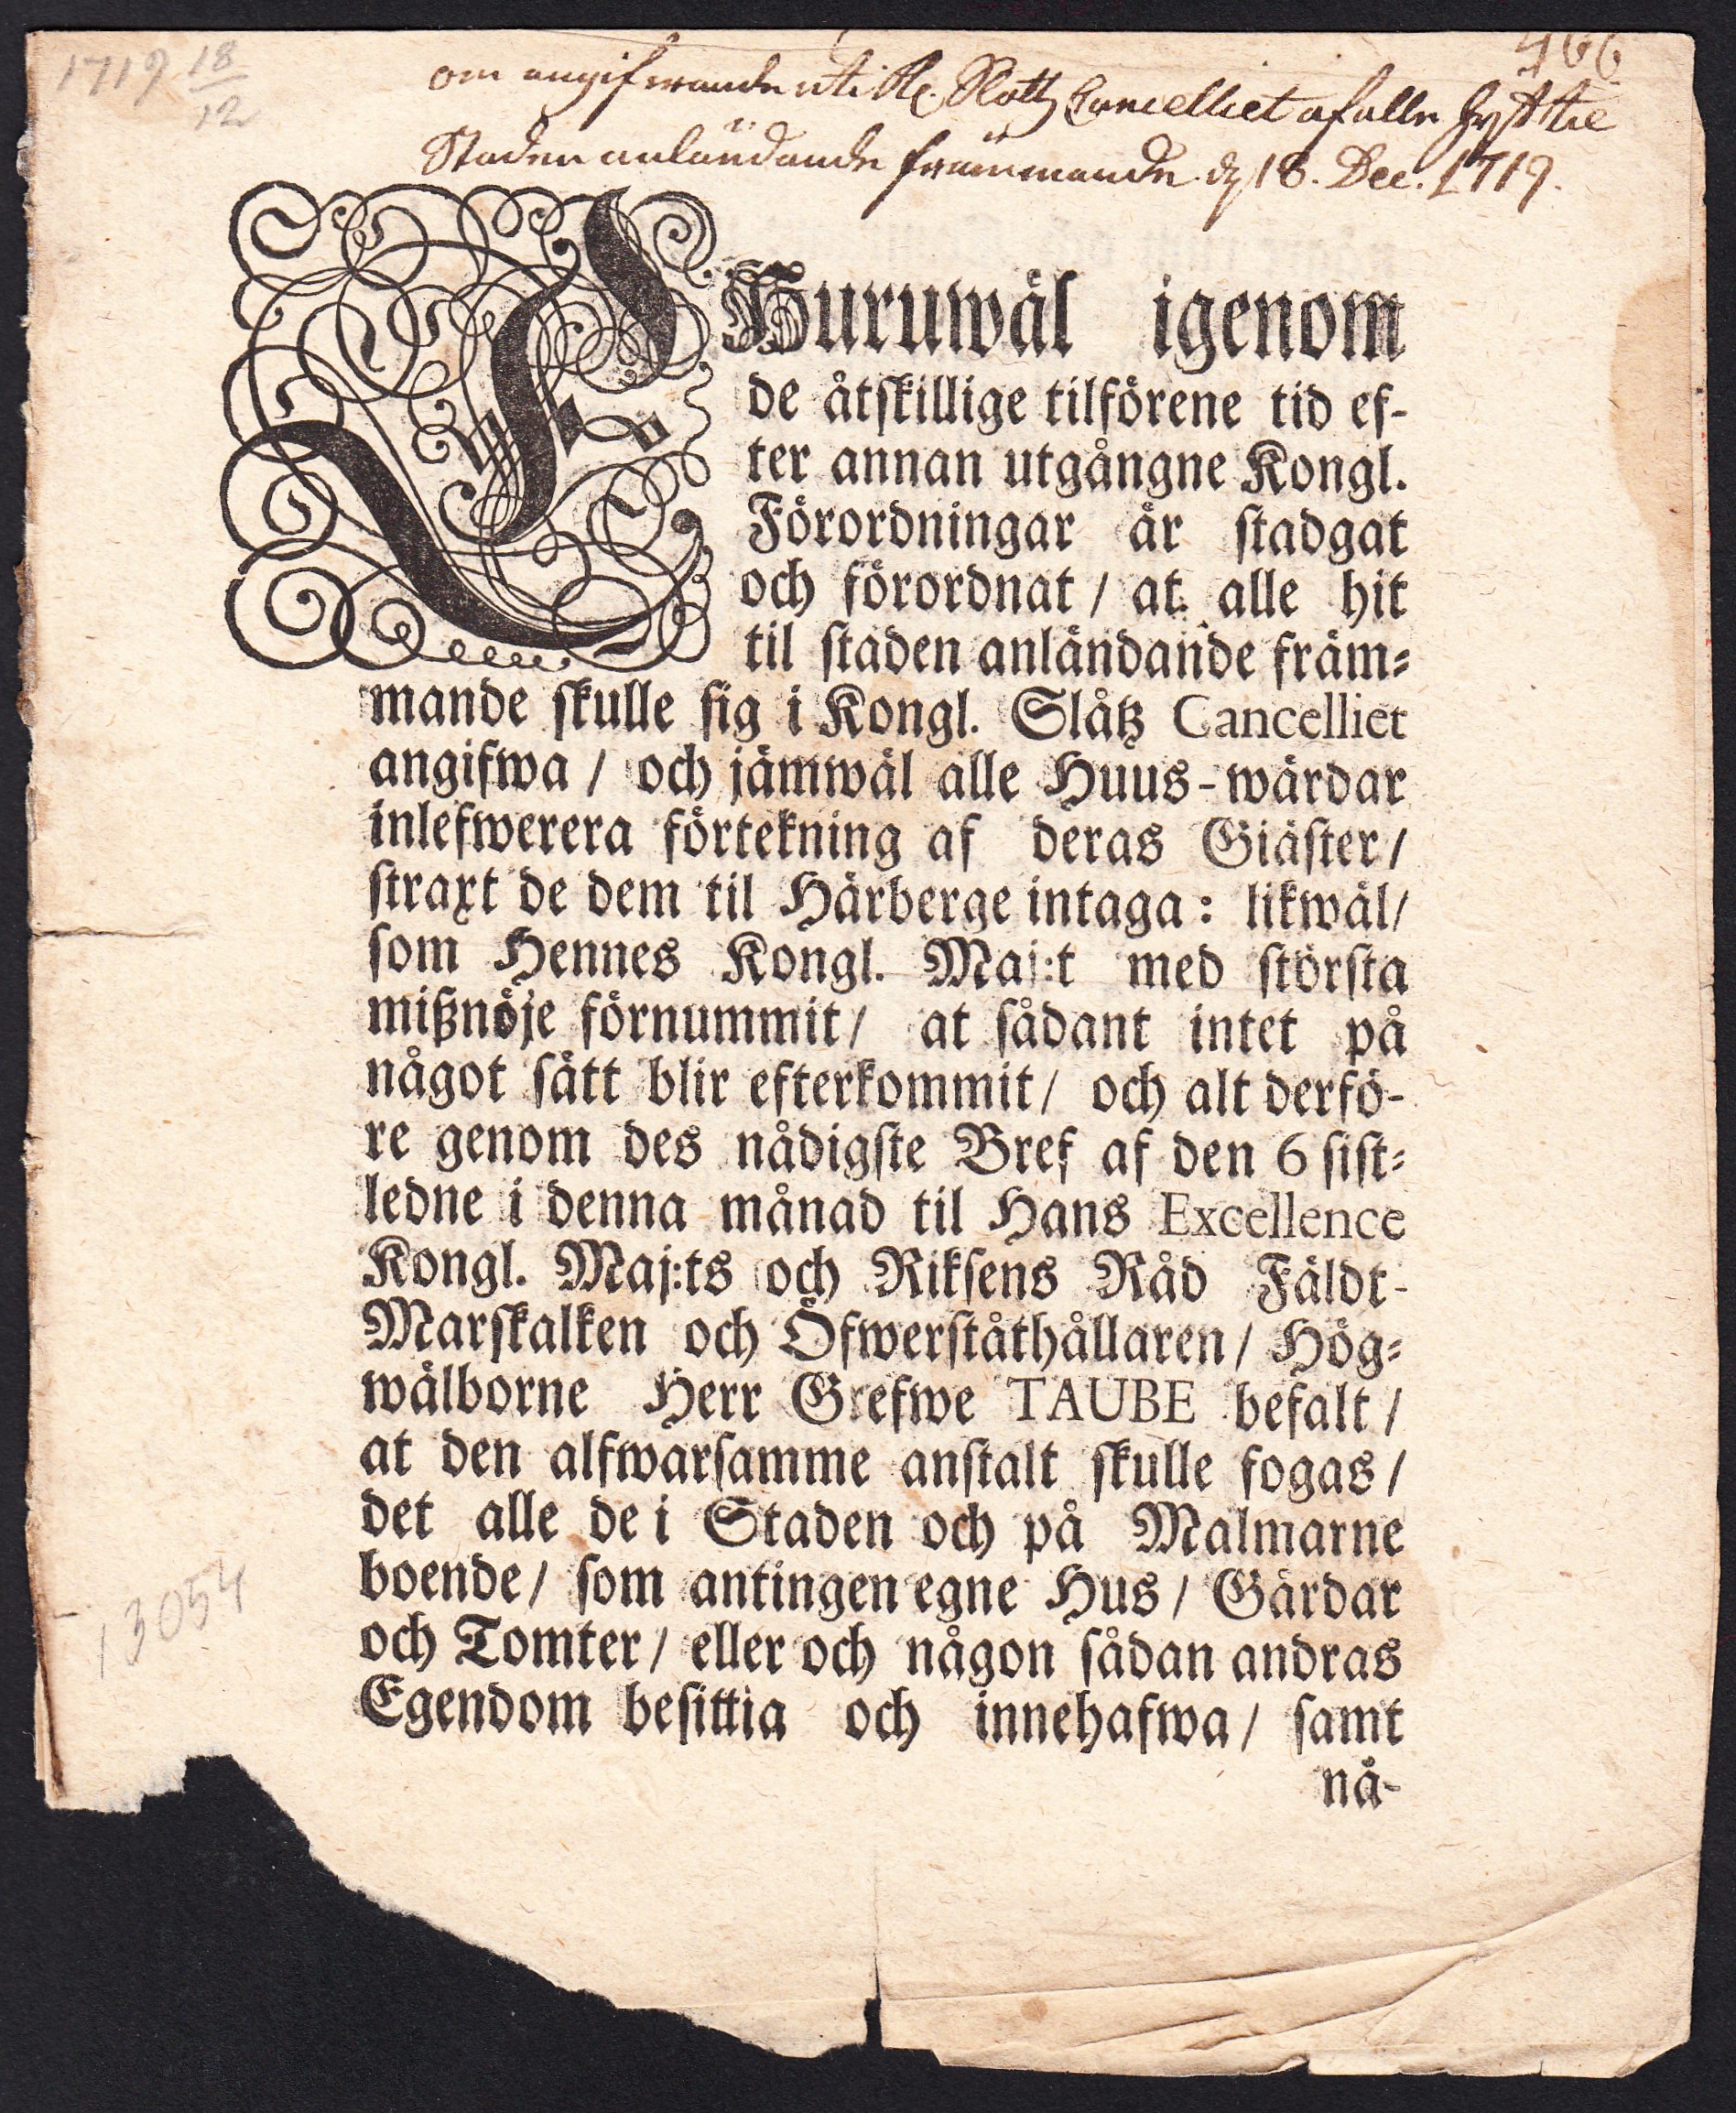 1719 18/12
466
om angifwande uti K. Slottz Cancelliet af alla hyt til
Staden anländande främmande d. 18. Dec. 1719.
EHuruwäl igenom
de åtskillige tilförene tid ef-
ter annan utgångne Kongl.
Förordningar är stadgat
och förordnat / at alle hit
til staden anländande främ-
mande skulle sig i Kongl. Slåtz Cancelliet
angifwa / och jämwäl alle Huus-wärdar
inlefwerera förtekning af deras Giäster /
straxt de dem til Härberge intaga: likwäl /
som Hennes Kongl. Maj:t med största
mißnöje förnummit / at sådant intet på
något sätt blir efterkommit / och alt derfö-
re genom des nådigste Bref af den 6 sist-
ledne i denna månad til Hans Excellence
Kongl. Maj:ts och Riksens Råd Fäldt-
Marskalken och Öfwerståthållaren / Hög-
wälborne Herr Grefwe TAUBE befalt /
at den alfwarsamme anstalt skulle fogas /
det alle de i Staden och på Malmarne
boende / som antingen egne Hus / Gårdar
och Tomter / eller och någon sådan andras
Egendom besittia och innehafwa / samt
nå-
13054